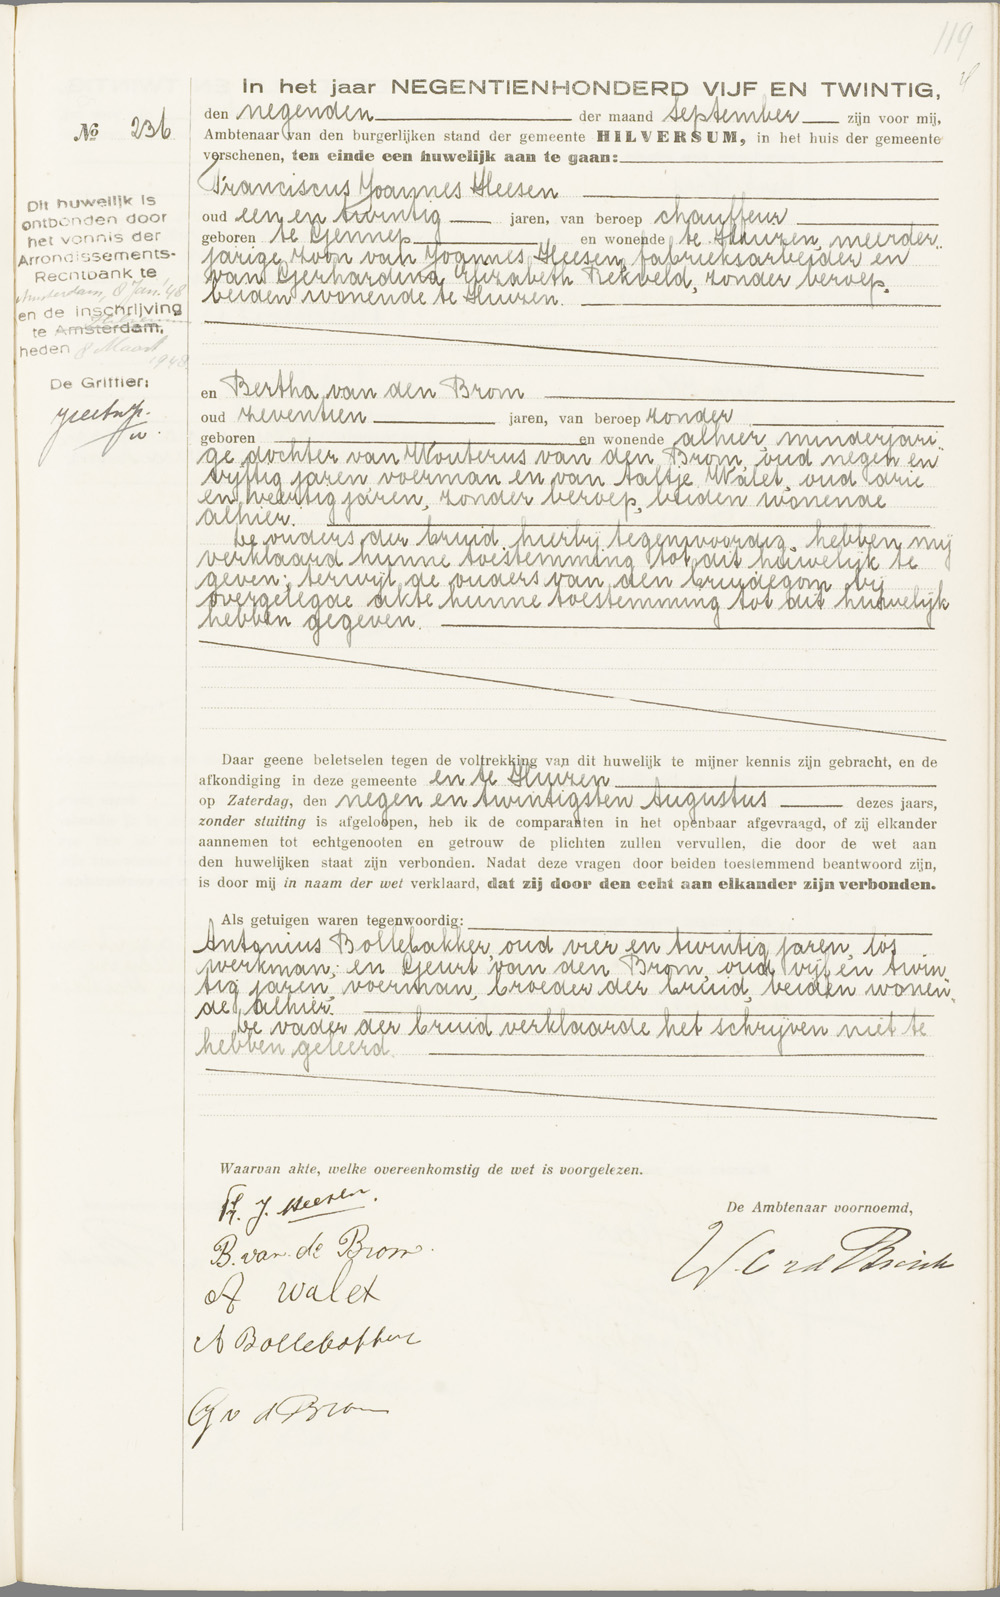 119
In het jaar NEGENTIENHONDERD VIJF EN TWINTIG,
den negenden der maand September zijn voor mij,
Ambtenaar van den burgerlijken stand der gemeente HILVERSUM, in het huis der gemeente
verschenen, ten einde een huwelijk aan te gaan:
Franciscus Joannes Heesen
oud een en twintig jaren, van beroep chauffeur
geboren te Gennep en wonende te Huizen, meerder-
jarige zoon van Joannes Heesen, fabrieksarbeider en
van Gerhardina Elizabeth Rekveld, zonder beroep,
beiden wonende te Huizen.
en Bertha van den Brom
oud zeventien jaren, van beroep zonder
geboren en wonende alhier, minderjari-
ge dochter van Wouterus van den Brom, oud negen en
vijftig jaren voerman en van Aaltje Walet, oud drie
en veertig jaren, zonder beroep, beiden wonende
alhier.
De ouders der bruid, hierbij tegenwoordig, hebben mij
verklaard hunne toestemming tot dit huwelijk te
geven; terwijl de ouders van den bruidegom bij
overgelegde akte hunne toestemming tot dit huwelijk
hebben gegeven.
Daar geene beletselen tegen de voltrekking van dit huwelijk te mijner kennis zijn gebracht, en de
afkondiging in deze gemeente en te Huizen
op Zaterdag, den negen en twintigsten Augustus dezes jaars,
zonder stuiting is afgeloopen, heb ik de comparanten in het openbaar afgevraagd, of zij elkander
aannemen tot echtgenooten en getrouw de plichten zullen vervullen, die door de wet aan
den huwelijken staat zijn verbonden. Nadat deze vragen door beiden toestemmend beantwoord zijn,
is door mij in naam der wet verklaard, dat zij door den echt aan elkander zijn verbonden.
Als getuigen waren tegenwoordig:
Antonius Bollebakker, oud vier en twintig jaren, los
werkman, en Geurt van den Brom, oud vijf en twin-
tig jaren, voerman, broeder der bruid, beiden wonen-
de alhier.
De vader der bruid verklaarde het schrijven niet te
hebben geleerd.
Waarvan akte, welke overeenkomstig de wet is voorgelezen.
Fr. J. Heesen.
B. van de Brom
A Walet
A Bollebakker
G v d Brom
De Ambtenaar voornoemd,
No 236
Dit huwelijk is
ontbonden door
het vonnis der
Arrondissements-
Rechtbank te
Amsterdam, 8 Jan. '48
en de inschrijving
Hilversum
te Amsterdam,
heden 8 Maart
1948
De Griffier: